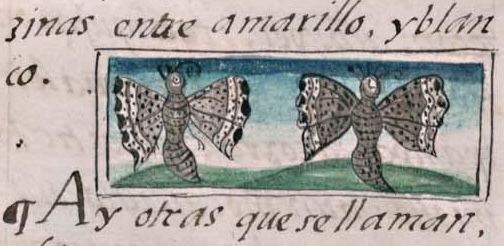 zinas entre amarillo, y blan
co.
¶ Ay otras que se llaman,